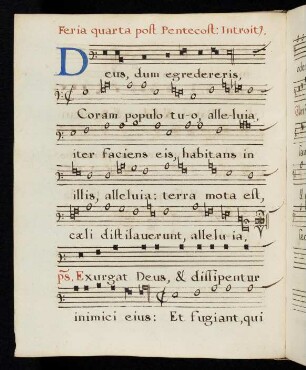 Feria quarta post Pentecost: Introit⁹.
Deus, dum egredereris,
Coram populo tu-o, alle-luia,
iter faciens eis, habitans in
illis, alleluia: terra mota est,
cæli distilauerunt, allelu-ia,
ps. Exurgat Deus, & dissipentur
inimici eius: Et fugiant, qui